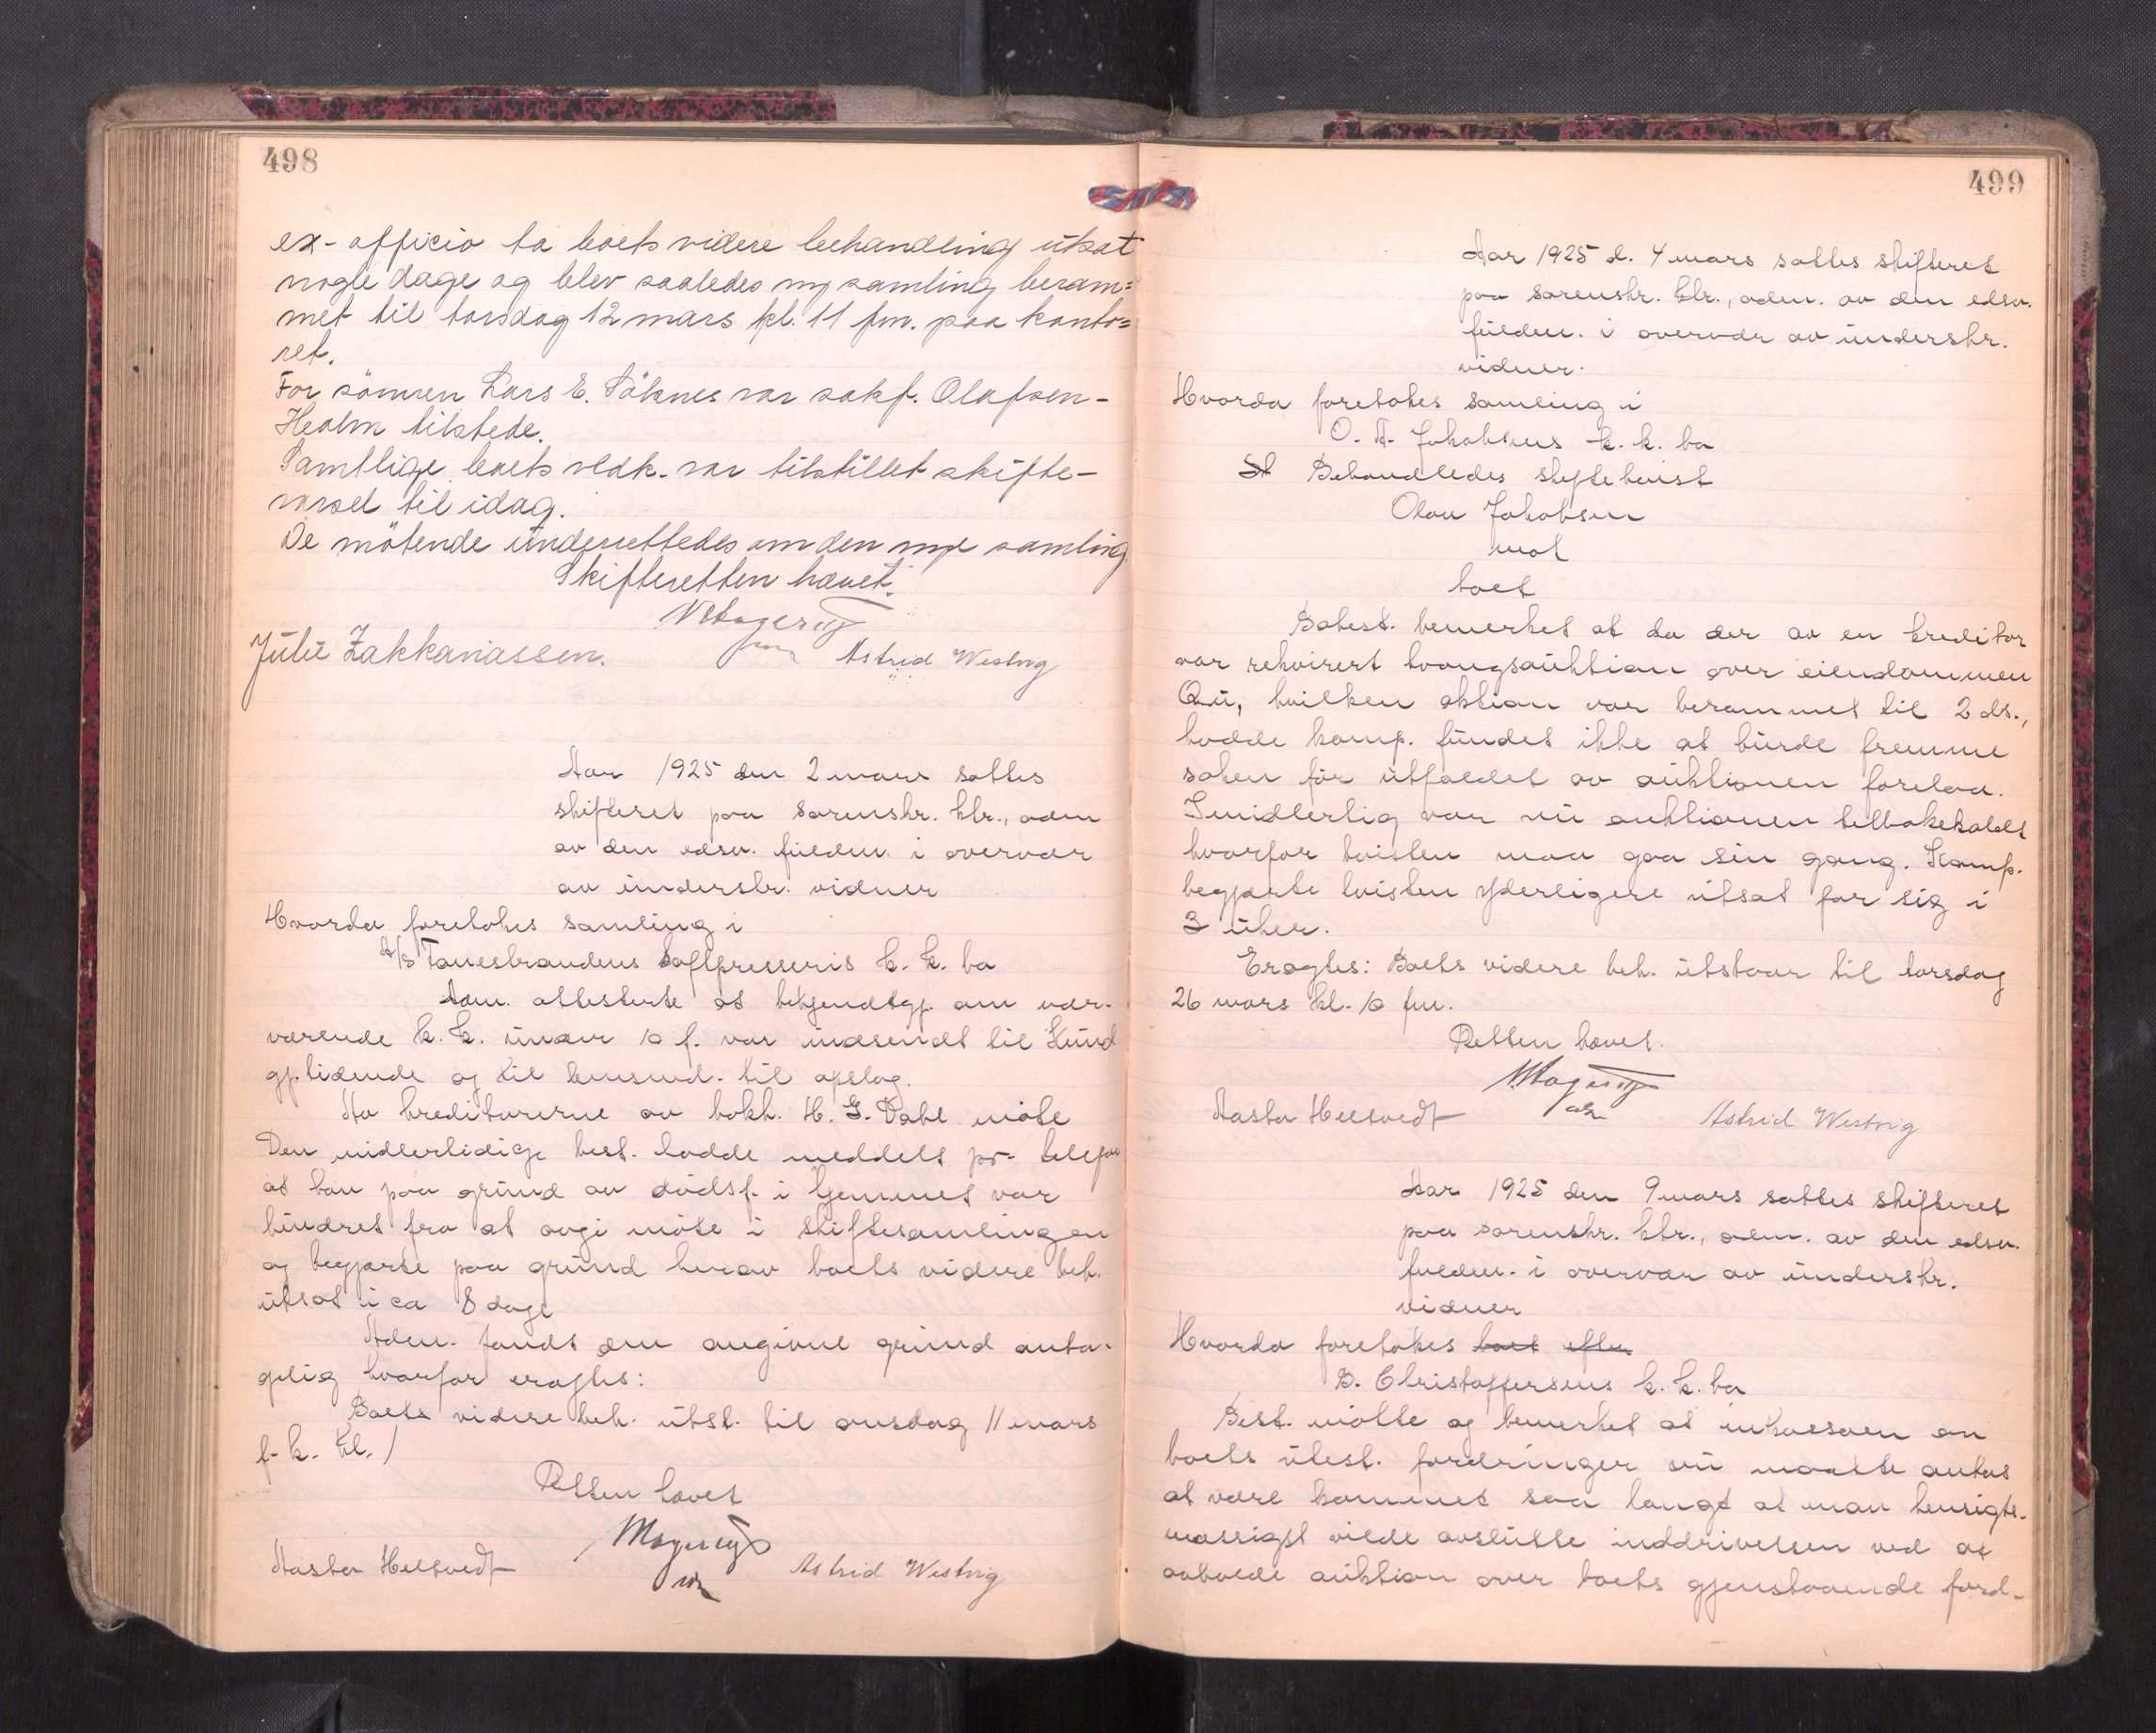 498
ex-officio ta boets videre behandling utsat
nogle dage og blev saaledes ny samling beram=
met til torsdag 12 mars kl. 11 fm. paa konto=
ret.
For sönnen Lars E. Söknes var sakf. Olafsen-
Healm tilstede.
Samtlige boets vedk. var tilstillet skifte-
varsel til idag.
De mötende underrettedes om den nye samling
Skifteretten hævet.
Julie Zakkariassen.
Astrid Westvig
Aar 1925 den 2 mars sattes
skifteret paa sorenskr. ktr., adm
av den edsv. fuldm. i overvær
av underskr. vidner
Hvorda foretokes samling i
A/S Tanesbrandens Saftpresseris k. k. bo
Adm. attesterte at bekjendtgj. om nær-
værende k. k. under 10 f. var indsendt til Kund
gj.tidende og til lensmd. til opslag.
Av kreditorerne av bokh. H. J. Dahl möte
Den midlertidige best. hadde meddelt pr. telefon
at han paa grund av dödsf. i hjemmet var
hindret fra at avgi möte i skiftesamlingen
og begjærte paa grund herav boets videre beh.
utsat i ca 8 dage
Adm. fandt den angivne grund anta-
gelig hvorfor eragtes:
Boets videre beh. utst. til onsdag 11 mars
f. k. kl. 1
Retten hævet
Aasta Heltvedt
Astrid Westvig
499
Aar 1925 d. 4 mars sattes skifteret
paa sorenskr. ktr., adm. av den edsv.
fuldm. i overvær av underskr.
vidner.
Hvorda foretokes samling i
O. A. Jakobsens k. k. bo
Behandledes skiftetvist
Olav Jakobsen
mot
boet
Bobest. bemerket at da der av en kreditor
var rekvirert tvangsauktion over eiendommen
Qu, hvilken aktion var berammet til 2 ds.,
hadde komp. fundet ikke at burde fremme
saken før utfaldet av auktionen forelaa.
Imidlertig var nu auktionen tilbakekaldt
hvorfor tvisten maa gaa sin gang. Komp.
begjærte tvisten yderligere utsat for sig i
3 uker.
Eragtes: Boets videre beh. utstaar til torsdag
26 mars kl. 10 fm.
Retten hævet.
Aasta Heltvedt
Astrid Westvig
Aar 1925 den 9 mars sattes skifteret
paa sorenskr. ktr., adm. av den edsv.
fuldm. i overvær av underskr.
vidner
Hvorda foretokes boet efter
B. Christoffersens k. k. bo
Best. mötte og bemerket at inkassoen av
boets utest. fordringer nu maatte antas
at være kommet saa langt at man hensigts-
mæssigst vilde avslutte inddrivelsen ved at
avholde auktion over boets gjenstaaende ford-